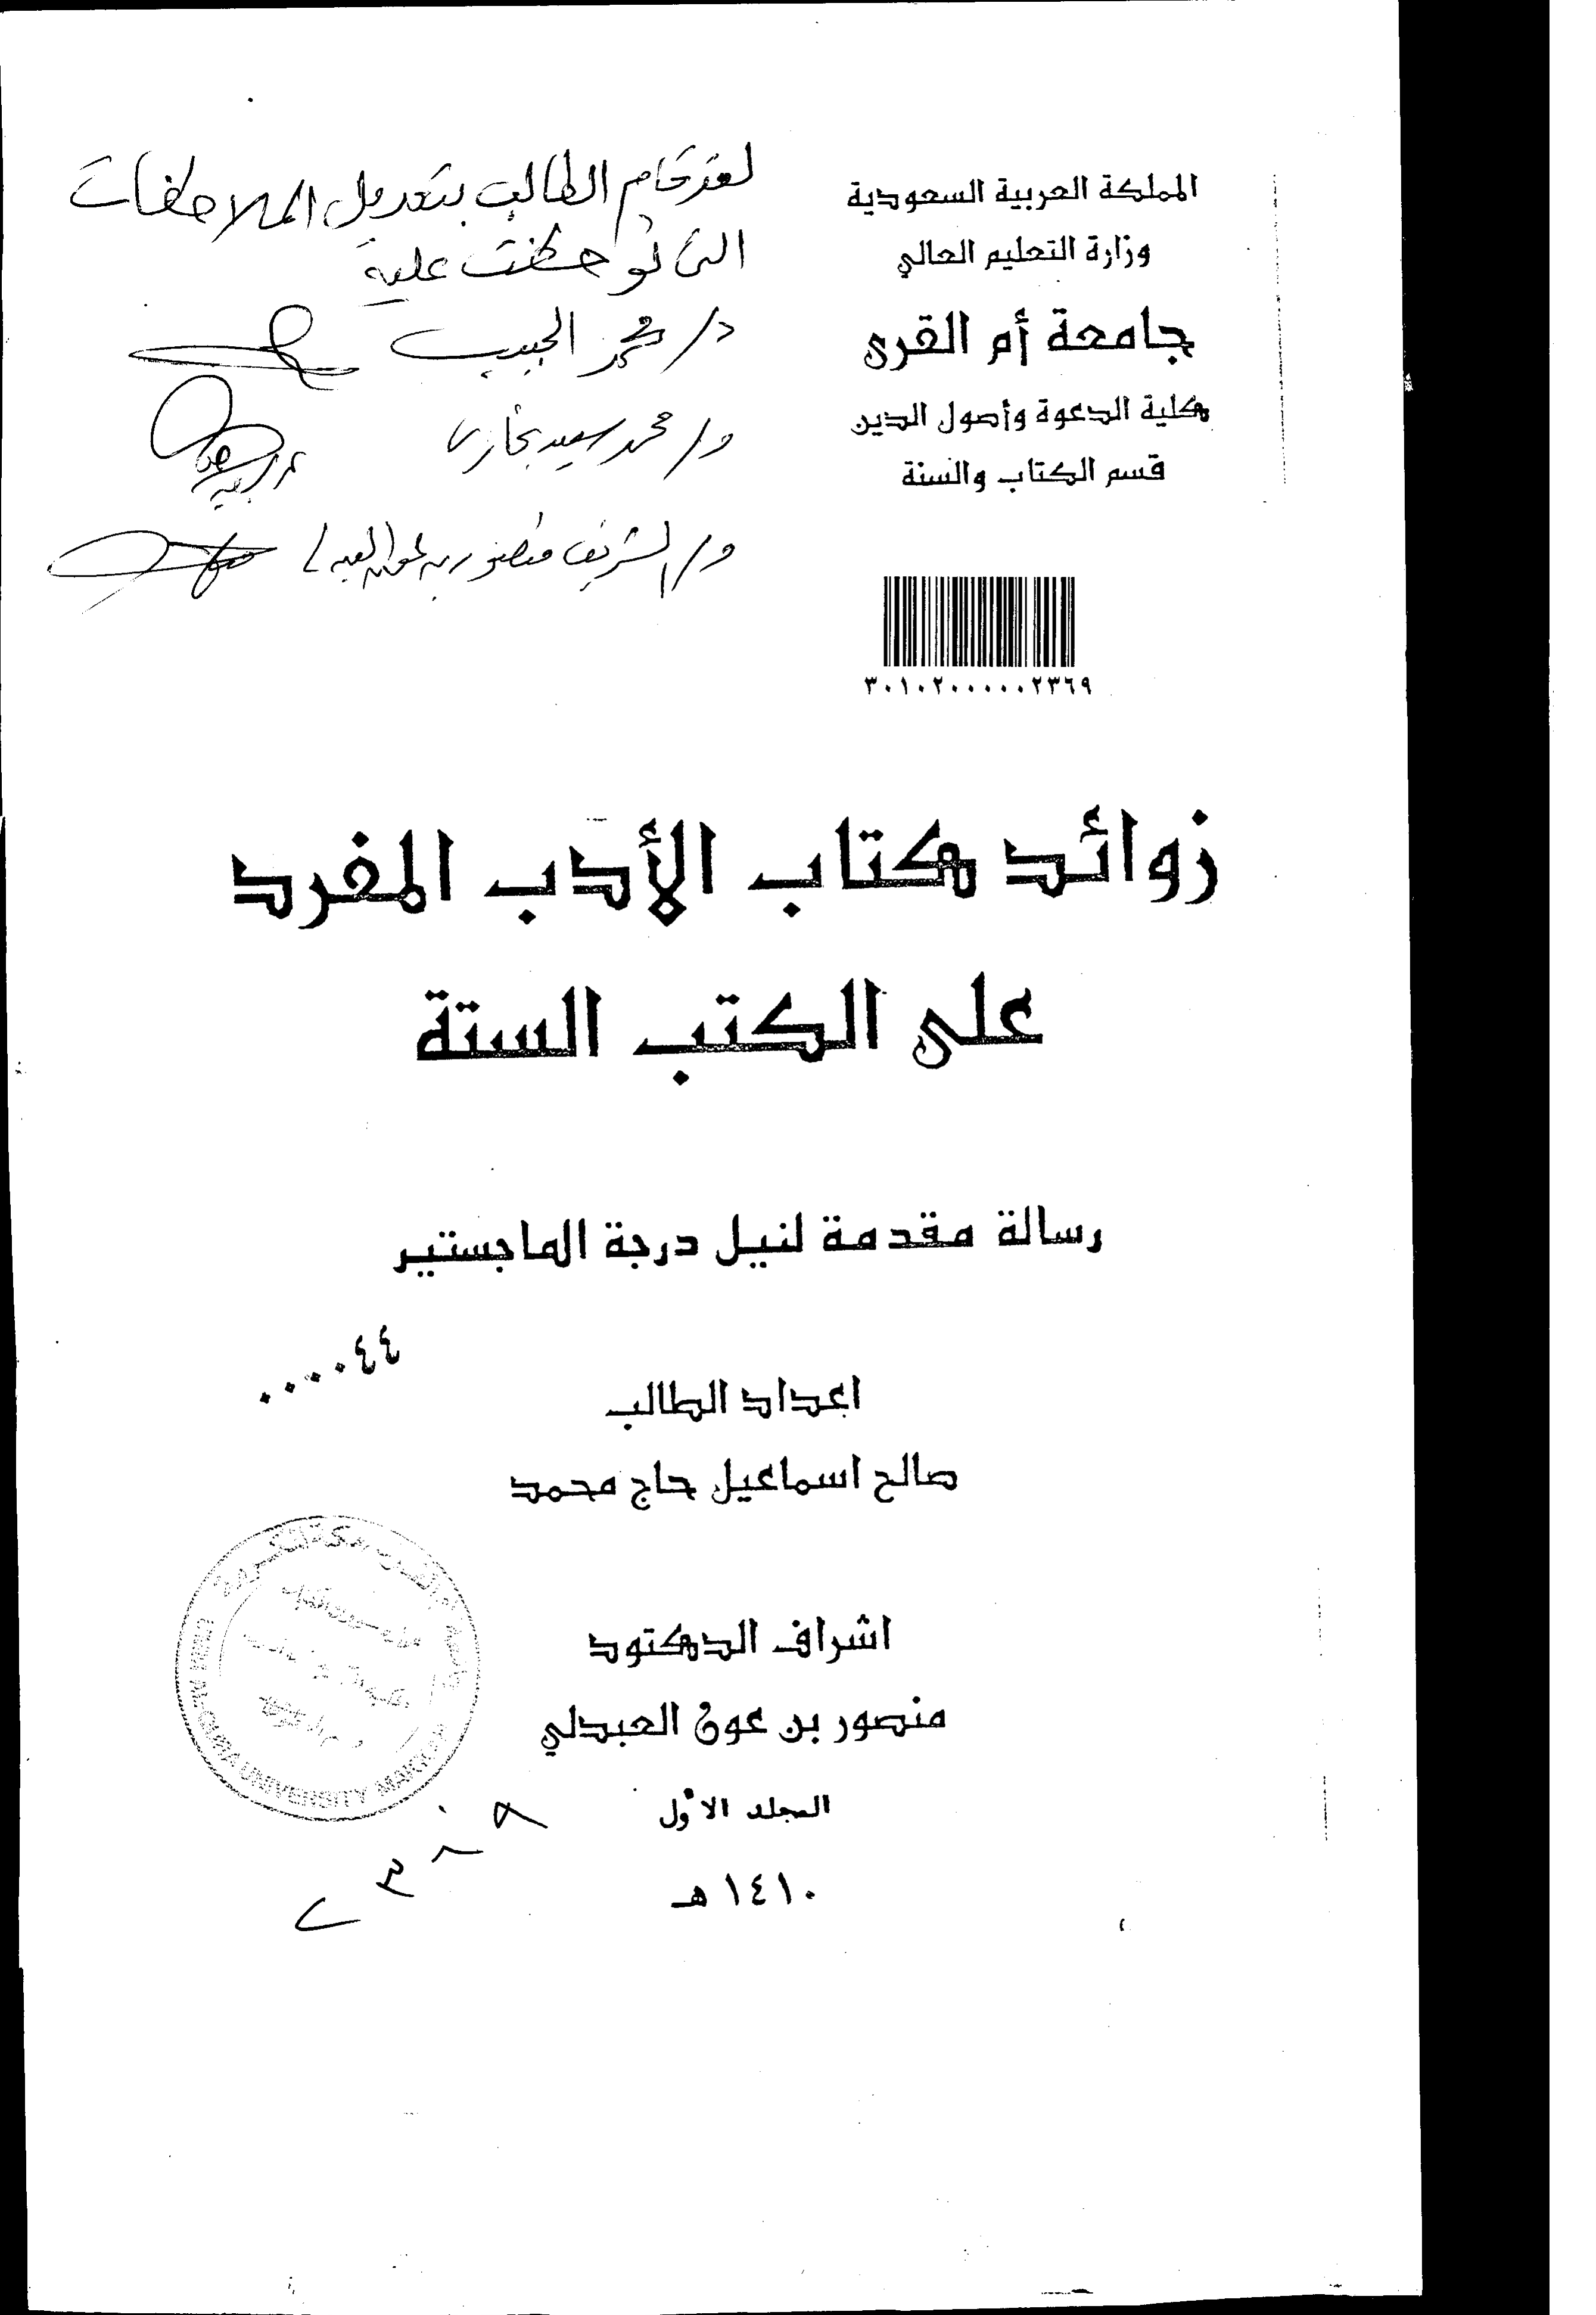 المملكة العربية السعودية
وزارة التعليم العالي
جامعة أم القرى
كلية الدعوة وأصول الدين
قسم الكتاب والسنة
لقد قام الطالب بتعديل الملاحظات
التي لوحظت عليه
د/ محمد الحبيب
د/ محمد سعيد بخاري
د/ الشريف منصور بن عون العبدلي
٣٠١٠٢٠٠٠٠٠٢٣٦٩
زوائد كتاب الأدب المفرد
على الكتب الستة
رسالة مقدمة لنيل درجة الماجستير
٠٠٠٠٤٤
اعداد الطالب
صالح اسماعيل حاج محمد
اشراف الدكتود
منصور بن عون العبدلي
المجلد الأول
١٤١٠ هـ
UMM AL-QURA UNIVERSITY MAKKAH